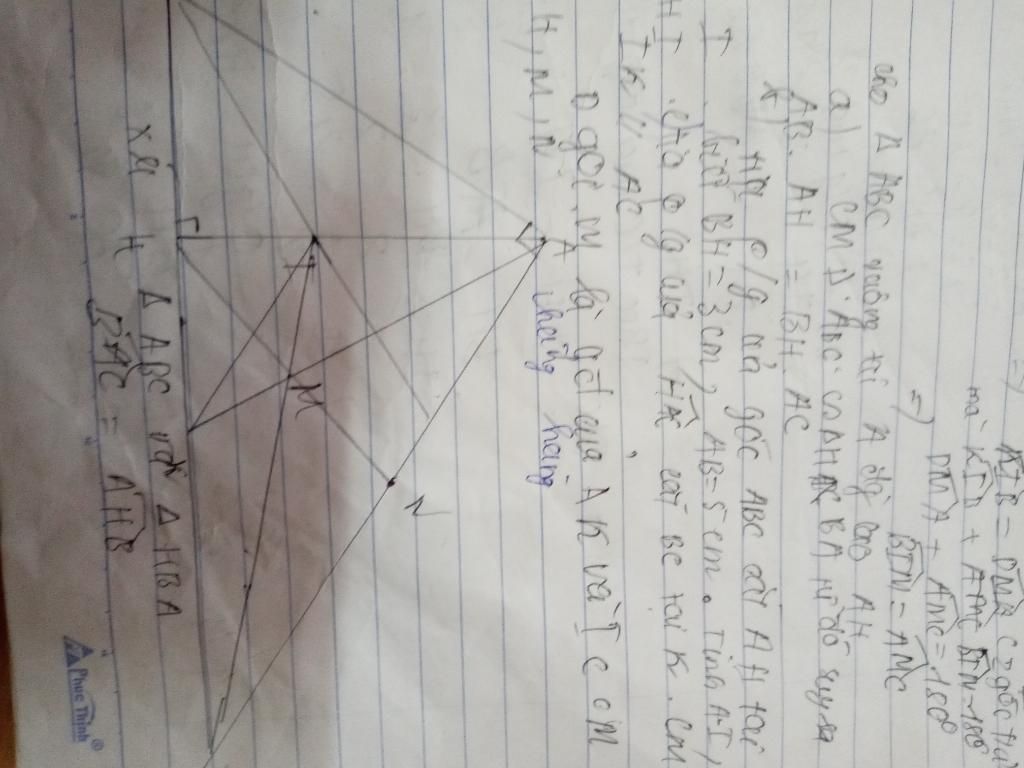 =) AIB = DMA
mà KIB + AMC
DMA + AMC = 180°
=) BIN = AMC
cho Δ ABC vuông tại A đg cao AH
a) CM Δ ABC ∽ Δ HBA từ đó suy ra
AB. AH = BH. AC
p/g của góc ABC cắt AH tại
I biết BH = 3cm, AB = 5cm. Tính AI,
HI cho p/g của HAC cắt BC tại K. CM
IK // AC
D gọi M là gđ của AK và IC CM
H, M, N thẳng hàng
A
I
M
N
H
Xét Δ ABC với Δ HBA
BAC = AHB
Phuc Thinh®